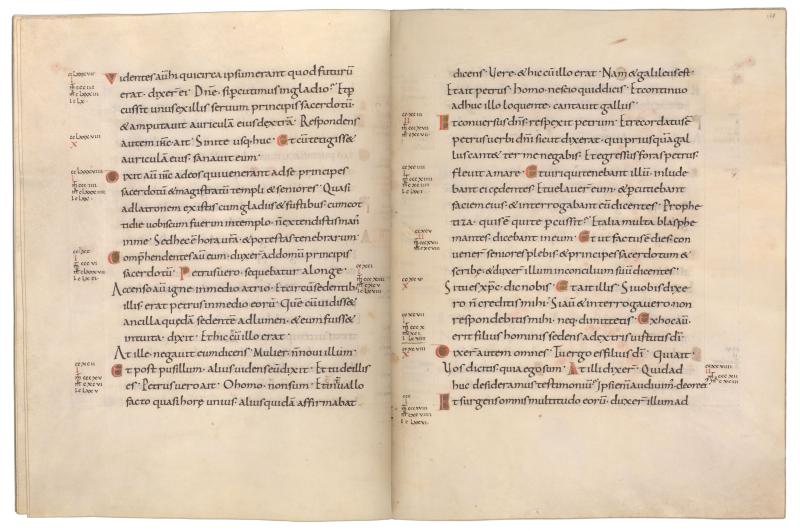 Videntes aūt hi qui circa ipsum erant quod futurū
erat · dixer̄ ei · Dn̄e · si percutimus in gladio ? Et p
cussit unus ex illis seruum principis sacerdotū ·
& amputauit auriculā eius dextrā · Respondens
autem ih̄c · ait · Sinite usq; huc · Et cū tetigisse&
auriculā eius · sanauit eum ·
Dixit aūt ih̄c ad eos qui uenerant ad se principes
sacerdotū & magistratū templi & seniores · Quasi
ad latronem existis cum gladiis & fustibus · cum cot
tidie uobiscum fuerim in templo · n̄ extendistis man̄
in me · Sed hec ē hora ur̄a · & potestas tenebrarum ·
Comprehendentes aūt eum · duxer̄ ad domū principis
sacerdotū · Petrus uero · sequebatur a longe ·
Accenso aūt igne · in medio atrio · Et circū sedentib;
illis · erat petrus in medio eorū · Quē cū uidisse&
ancilla quędā sedentē ad lumen · & eum fuisse&
intuita · dixit · Et hic cū illo erat ·
At ille · negauit eum dicens · Mulier · n̄ noui illum ·
Et post pusillum · alius uidens eū dixit · Et tu de illis
es · Petrus uero ait · O homo · non sum · Et interuallo
facto quasi horę unius · alius quidā affirmabat
dicens · Uere · & hic cū illo erat · Nam & galileus est ·
Et ait petrus · Homo · nescio quid dicis · Et continuo
adhuc illo loquente · cantauit gallus ·
Et conuersus dn̄s · respexit petrum · Et recordatus ē
petrus uerbi dn̄i sicut dixerat · qui priusquā gal
lus cant& · ter me negabis · Et egressus foras petrus ·
fleuit amare · Et uiri qui tenebant illū · inlude
bant ei cędentes · Et uelauer̄ eum · & percutiebant
faciem eius · & interrogabant eū dicentes · Prophe
tiza · quis ē qui te percussit ? Et alia multa blasphe
mantes · dicebant in eum · Et ut factus ē dies · con
uener̄ seniores plebis · & principes sacerdotum &
scribę · & duxer̄ illum in concilium suū dicentes ·
Si tu es xp̄c · dic nobis · Et ait illis · Si uobis dixe
ro · n̄ creditis mihi · Si aūt & interrogauero · non
respondebitis mihi · neq; dimittetis · Ex hoc aūt ·
erit filius hominis sedens a dextris uirtutis dī ·
Dixer̄ autem omnes · Tu ergo es filius dī · Qui ait ·
Vos dicitis quia ego sum · At illi dixer̄ · Quid ad
huc desideramus testimoniū ? Ipsi enim audiuim; de ore ei
Et surgens omnis multitudo eorū · duxer̄ illum ad